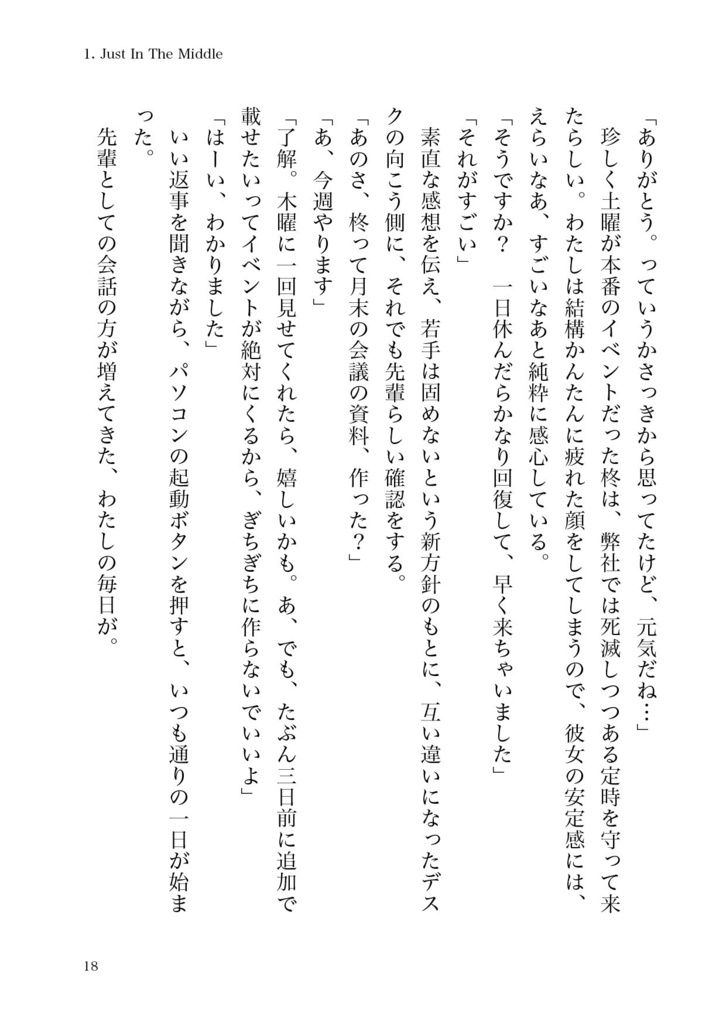 1. Just In The Middle
「ありがとう。っていうかさっきから思ってたけど、元気だね…」
珍しく土曜が本番のイベントだった柊は、弊社では死滅しつつある定時を守って来
たらしい。わたしは結構かんたんに疲れた顔をしてしまうので、彼女の安定感には、
えらいなあ、すごいなあと純粋に感心している。
「そうですか？　一日休んだらかなり回復して、早く来ちゃいました」
「それがすごい」
素直な感想を伝え、若手は固めないという新方針のもとに、互い違いになったデス
クの向こう側に、それでも先輩らしい確認をする。
「あのさ、柊って月末の会議の資料、作った？」
「あ、今週やります」
「了解。木曜に一回見せてくれたら、嬉しいかも。あ、でも、たぶん三日前に追加で
載せたいってイベントが絶対にくるから、ぎちぎちに作らないでいいよ」
「はーい、わかりました」
いい返事を聞きながら、パソコンの起動ボタンを押すと、いつも通りの一日が始ま
った。
先輩としての会話の方が増えてきた、わたしの毎日が。
18